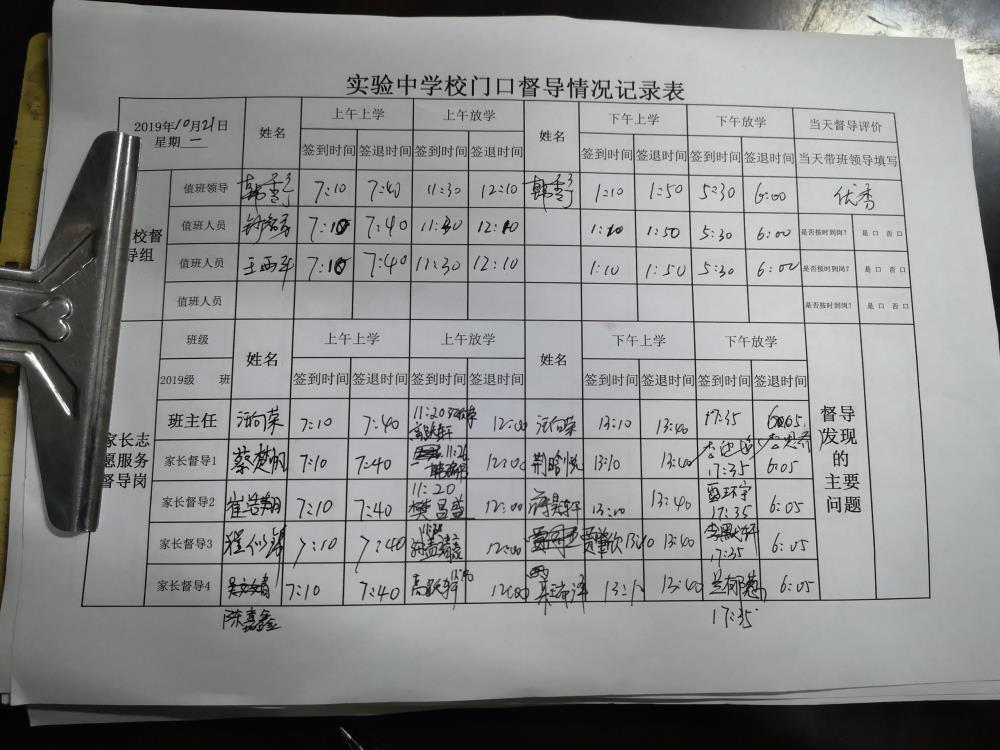 实验中学校门口督导情况记录表
2019年10月21日
星期 一
姓名 上午上学 上午放学 姓名 下午上学 下午放学 当天督导评价
签到时间 签退时间 签到时间 签退时间 签到时间 签退时间 签到时间 签退时间 当天带班领导填写
校督
导组
值班领导 7:10 7:40 11:30 12:10 1:10 1:50 5:30 6:00 优秀
值班人员 7:10 7:40 11:30 12:10 1:10 1:50 5:30 6:00 是否按时到岗? 是 口 否 口
值班人员 王西平 7:10 7:40 11:30 12:10 1:10 1:50 5:30 6:00 是否按时到岗? 是 口 否 口
值班人员 是否按时到岗? 是 口 否 口
班级 姓名 上午上学 上午放学 姓名 下午上学 下午放学
2019级 班 签到时间 签退时间 签到时间 签退时间 签到时间 签退时间 签到时间 签退时间
家长志
愿服务
督导岗
督导
发现
的
主要
问题
班主任 汪向荣 7:10 7:40 11:20 高跃轩 12:00 汪向荣 13:10 13:40 17:35
家长督导1 蔡楚帆 7:10 7:40 11:20 12:00 荆晗悦 13:10 13:40 17:35 6:05
家长督导2 崔浩翔 7:10 7:40 11:20 樊昌益 12:00 蒋昊轩 13:10 13:40 17:35 6:05
家长督导3 7:10 7:40 12:00 13:10 13:40 17:35 6:05
家长督导4 7:10 7:40 高跃轩 12:00 13:10 13:40 6:05
陈嘉鑫 17:35